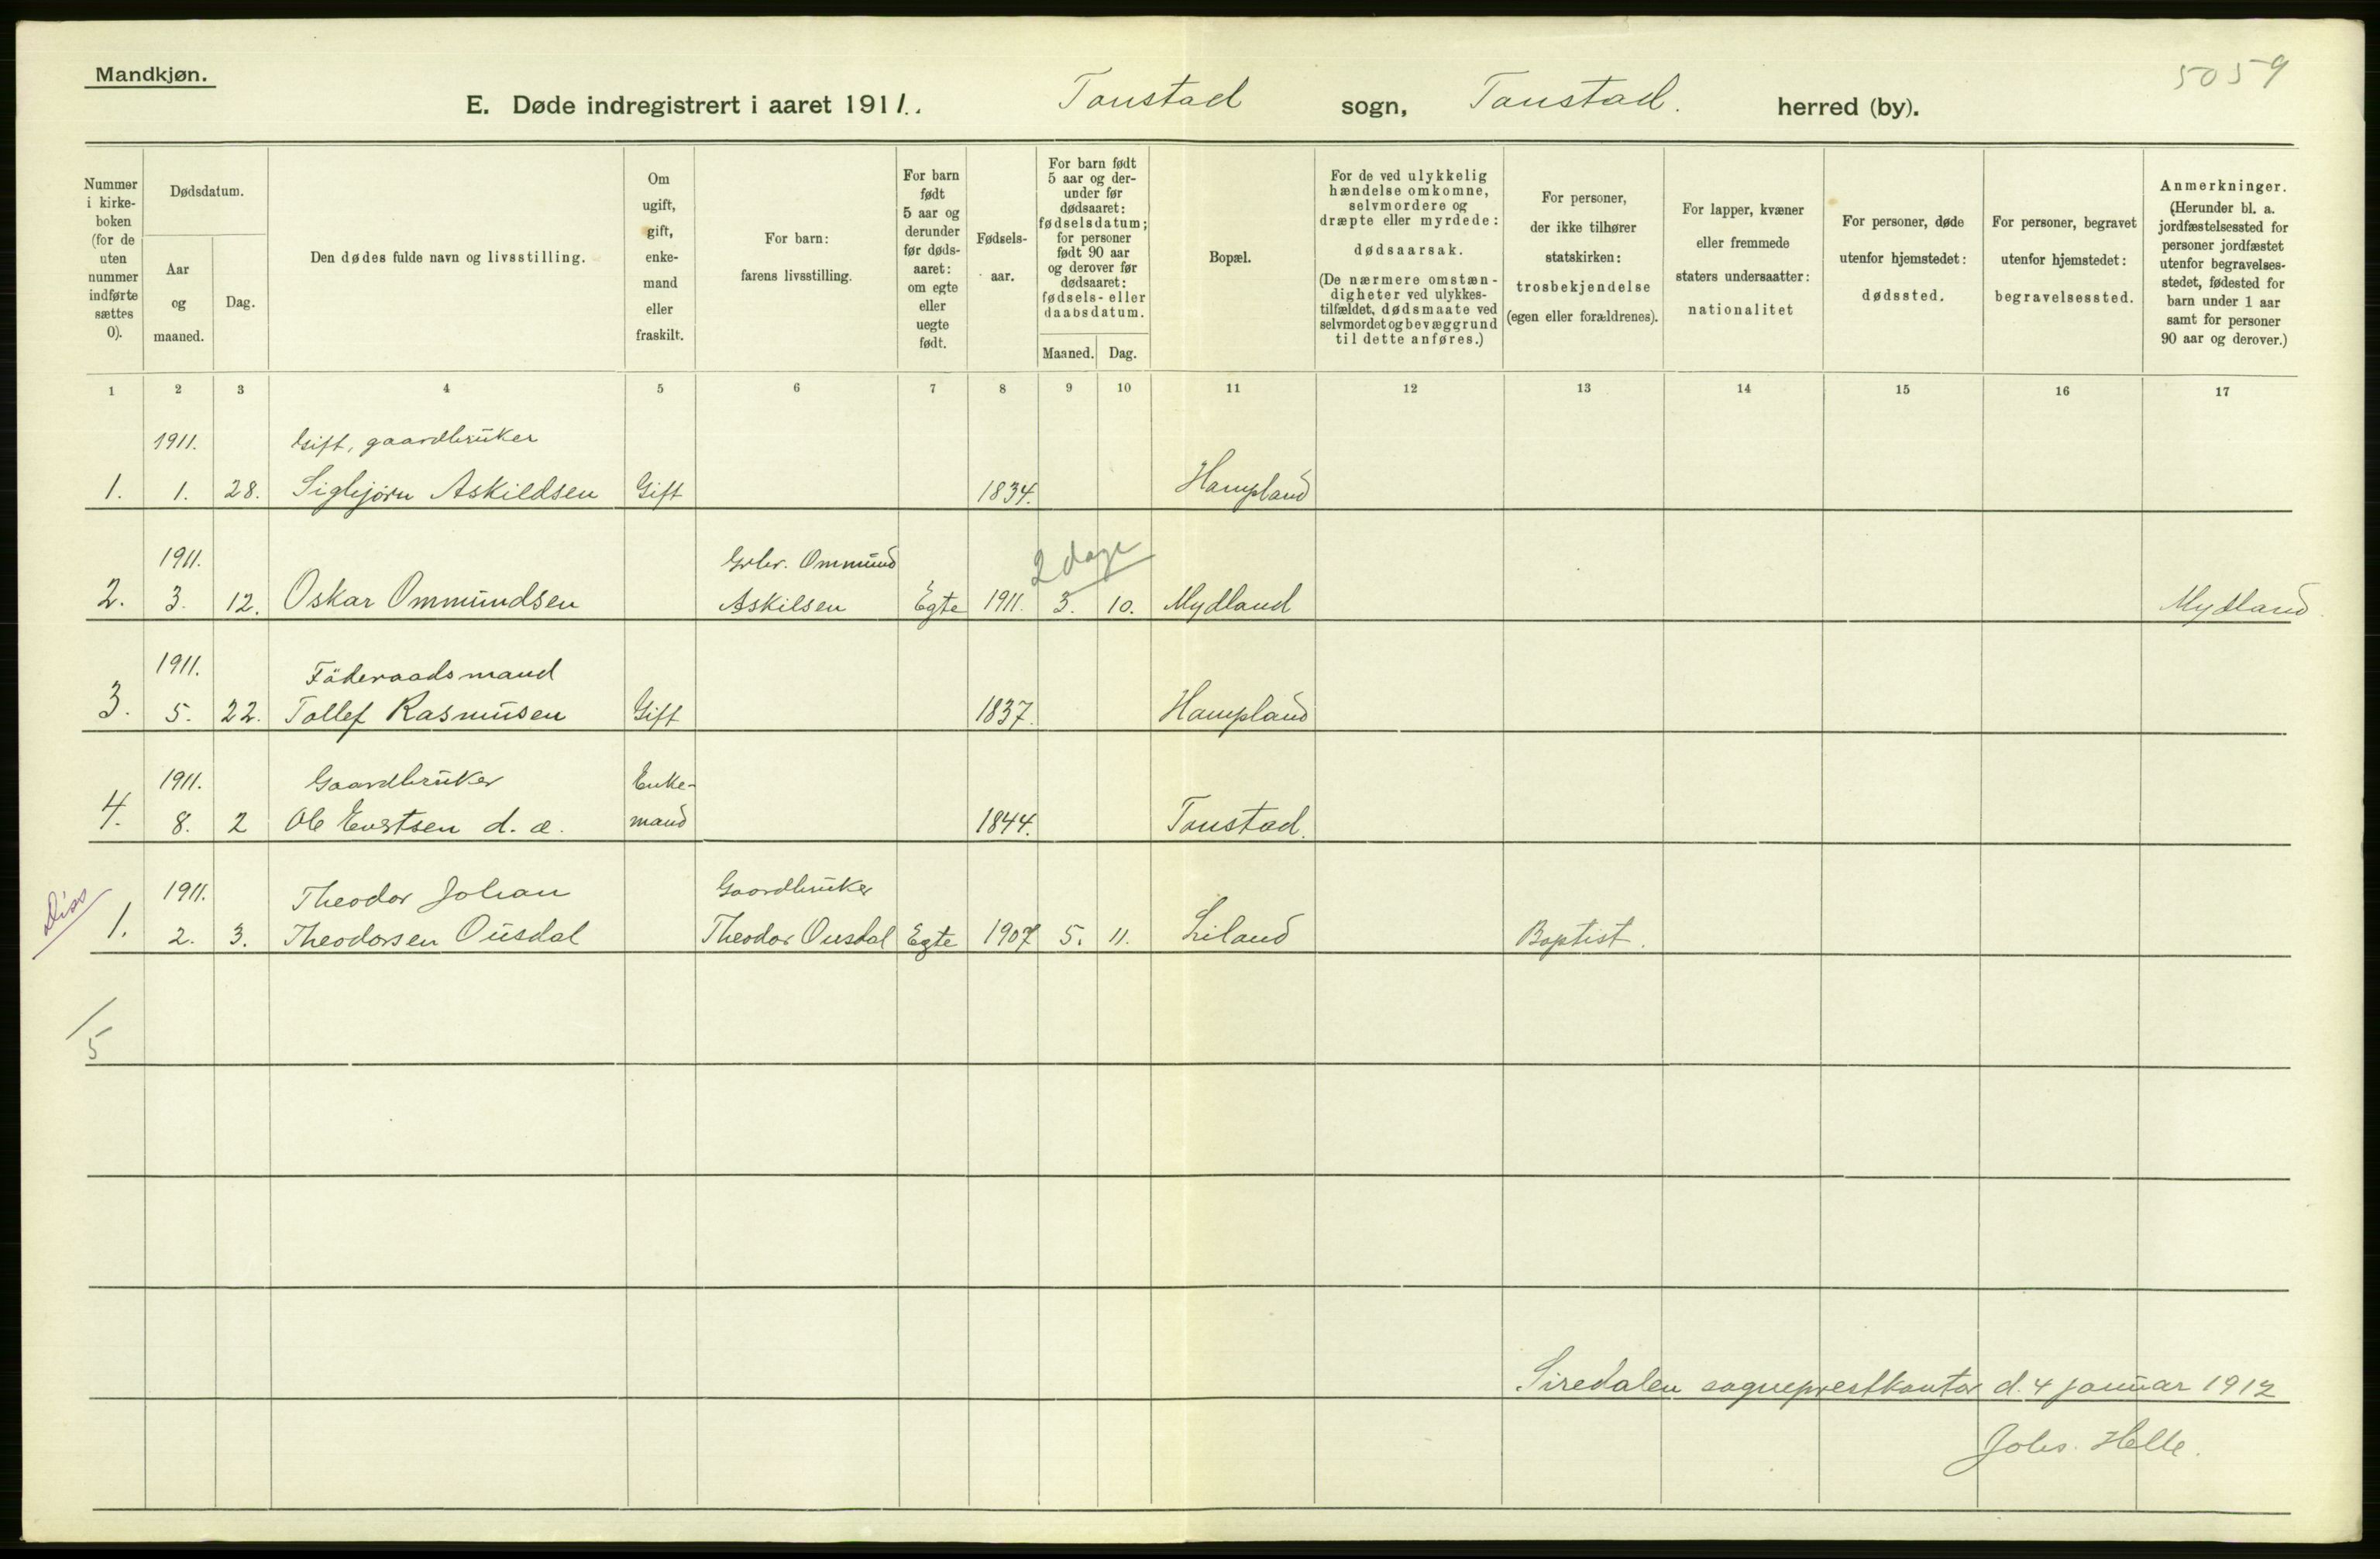 Mandkjøn.
5059
E. Døde indregistrert i aaret 1911. Tonstad sogn, Tonstad. herred (by).
Nummer i kirkeboken (for de uten nummer indførte sættes 0).
Dødsdatum.
Aar og maaned.
Dag.
Den dødes fulde navn og livsstilling.
Om ugift, gift, enkemand eller fraskilt.
For barn: farens livsstilling.
For barn født 5 aar og derunder før dødsaaret: om egte eller uegte født.
Fødselsaar.
For barn født 5 aar og derunder før dødsaaret: fødselsdatum; for personer født 90 aar og derover før dødsaaret: fødsels- eller daabsdatum.
Maaned.
Dag.
Bopæl.
For de ved ulykkelig hændelse omkomne, selvmordere og dræpte eller myrdede: dødsaarsak. (De nærmere omstændigheter ved ulykkestilfældet, dødsmaate ved selvmordet og bevæggrund til dette anføres.)
For personer, der ikke tilhører statskirken: trosbekjendelse (egen eller forældrenes).
For lapper, kvæner eller fremmede staters undersaatter: nationalitet
For personer, døde utenfor hjemstedet: dødssted.
For personer, begravet utenfor hjemstedet: begravelsessted.
Anmerkninger. (Herunder bl. a. jordfæstelsessted for personer jordfæstet utenfor begravelsesstedet, fødested for barn under 1 aar samt for personer 90 aar og derover.)
1 2 3 4 5 6 7 8 9 10 11 12 13 14 15 16 17
1911. Gift, gaardbruker
1. 1. 28. Sigbjørn Askildsen Gift 1834. Haugland
1911. Grbr. Ommund 2 dage
2. 3. 12. Oskar Ommundsen Askilsen Egte 1911. 3. 10. Mydland Mydland
1911. Föderaadsmand
3. 5. 22. Tollef Rasmusen Gift 1837. Haugland
1911. Gaardbruker Enke-
4. 8. 2 Ole Evertsen d. æ. mand 1844. Tonstad.
Diss 1911. Theodor Johan Gaardbruker
1. 2. 3. Theodorsen Ousdal Theodor Ousdal Egte 1907 5. 11. Liland Baptist.
5
Siredalen sogneprestkontor d. 4 januar 1912
Johs. Helle.